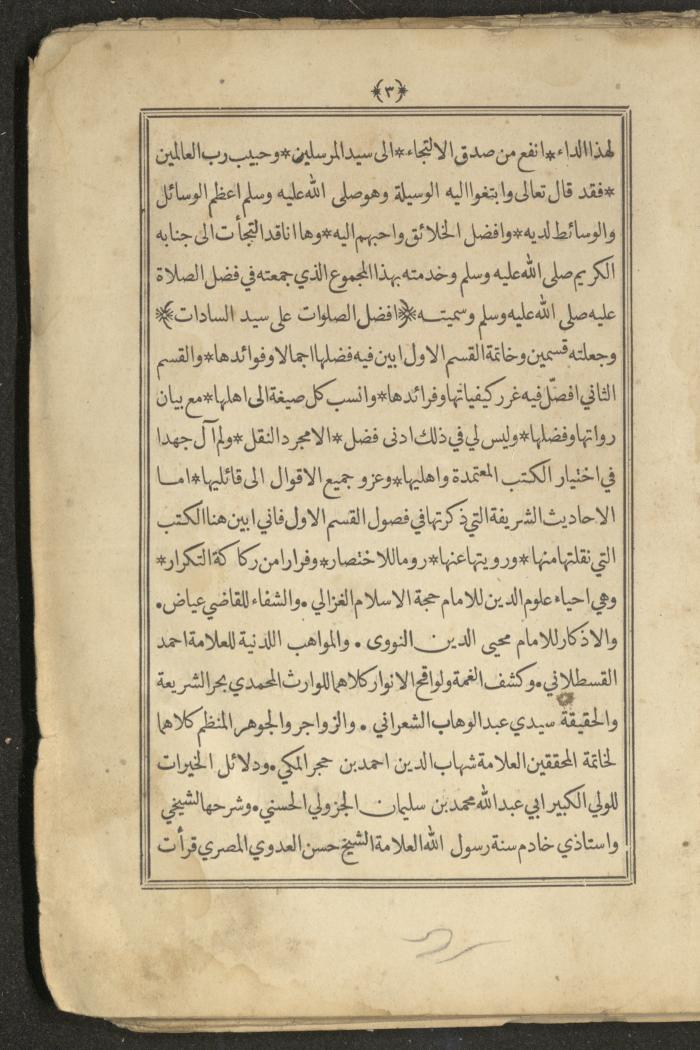 ﴿٣﴾
لهذا الداء*انفع من صدق الالتجاء*الى سيد المرسلين*وحبيب رب العالمين
*فقد قال تعالى وابتغوا اليه الوسيلة وهو صلى الله عليه وسلم اعظم الوسائل
والوسائط لديه*وافضل الخلائق واحبهم اليه*وها انا قد التجأت الى جنابه
الكريم صلى الله عليه وسلم وخدمته بهذا المجموع الذي جمعته في فضل الصلاة
عليه صلى الله عليه وسلم وسميته ﴿افضل الصلوات على سيد السادات﴾
وجعلته قسمين وخاتمة القسم الاول ابين فيه فضلها اجمالا وفوائدها*والقسم
الثاني افصّل فيه غرر كيفياتها وفرائدها*وانسب كل صيغة الى اهلها*مع بيان
رواتها وفضلها*وليس لي في ذلك ادنى فضل*الا مجرد النقل*ولم آل جهدا
في اختيار الكتب المعتمدة واهليها*وعزو جميع الاقوال الى قائليها*اما
الاحاديث الشريفة التي ذكرتها في فصول القسم الاول فاني ابين هنا الكتب
التي نقلتها منها*ورويتها عنها*روما للاختصار*وفرارا من ركاكة التكرار*
وهي احياء علوم الدين للامام حجة الاسلام الغزالي.والشفاء للقاضي عياض.
والاذكار للامام محيى الدين النووى . والمواهب اللدنية للعلامة احمد
القسطلاني.وكشف الغمة ولواقح الانوار كلاهما للوارث المحمدي بحر الشريعة
والحقيقة سيدي عبد الوهاب الشعراني . والزواجر والجوهر المنظم كلاهما
لخاتمة المحققين العلامة شهاب الدين احمد بن حجر المكي.ودلائل الخيرات
للولي الكبير ابي عبد الله محمد بن سليمان الجزولي الحسني.وشرحها لشيخي
واستاذي خادم سنة رسول الله العلامة الشيخ حسن العدوي المصري قرأت